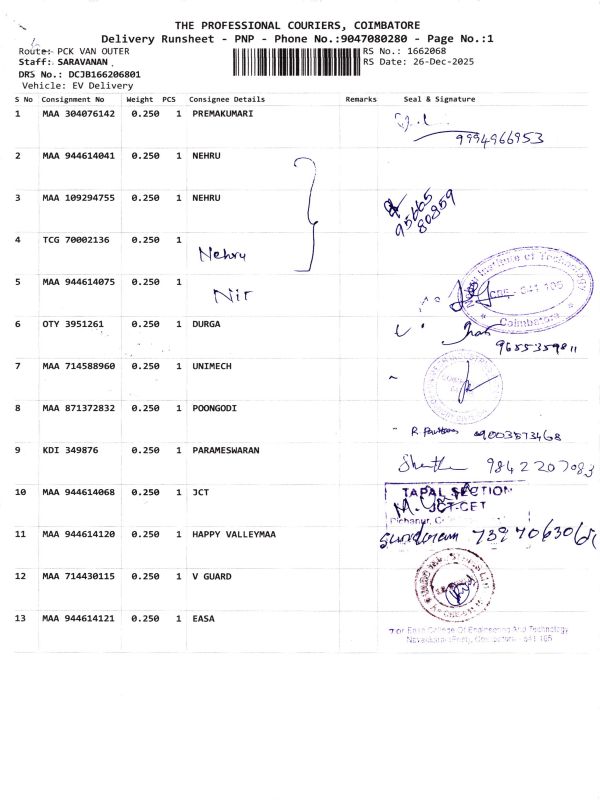 THE PROFESSIONAL COURIERS, COIMBATORE
Delivery Runsheet - PNP - Phone No.:9047080280 - Page No.:1
Route: PCK VAN OUTER
RS No.: 1662068
Staff: SARAVANAN
RS Date: 26-Dec-2025
DRS No.: DCJB166206801
Vehicle: EV Delivery
S No Consignment No Weight PCS Consignee Details Remarks Seal & Signature
1 MAA 304076142 0.250 1 PREMAKUMARI
9994966953
2 MAA 944614041 0.250 1 NEHRU
3 MAA 109294755 0.250 1 NEHRU
95665
80859
4 TCG 70002136 0.250 1 Nehru
5 MAA 944614075 0.250 1 Nit
Institute of Technology
CBE - 641 105
Coimbatore
6 OTY 3951261 0.250 1 DURGA
9655359811
7 MAA 714588960 0.250 1 UNIMECH
8 MAA 871372832 0.250 1 POONGODI
9003573468
9 KDI 349876 0.250 1 PARAMESWARAN
9842207083
10 MAA 944614068 0.250 1 JCT
TAPAL SECTION
JCT-CET
11 MAA 944614120 0.250 1 HAPPY VALLEYMAA
12 MAA 714430115 0.250 1 V GUARD
13 MAA 944614121 0.250 1 EASA
For Easa College Of Engineering And Technology
Coimbatore - 641 105